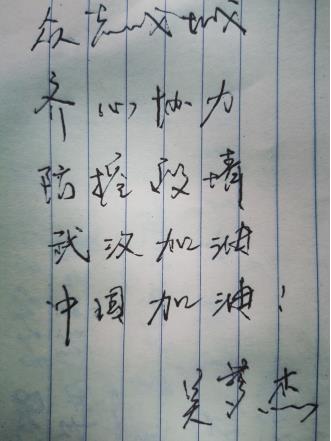 众志成城
齐心协力
防控疫情
武汉加油
中国加油！
吴梦杰